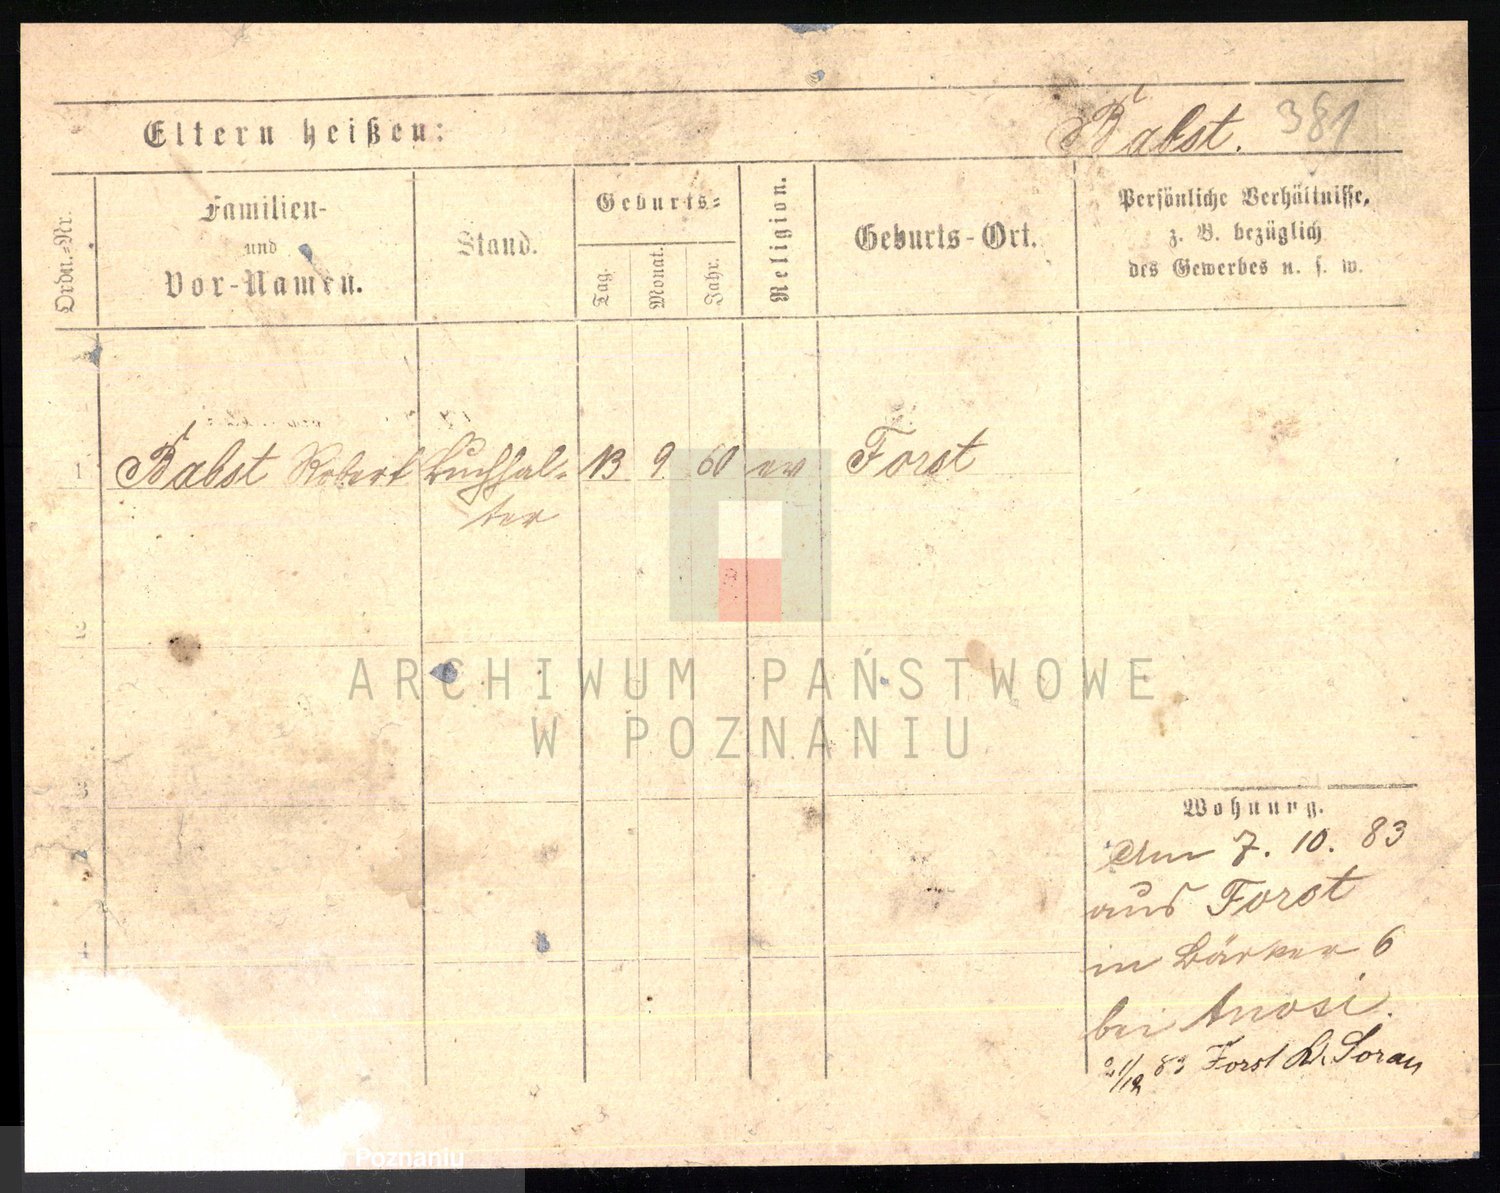 Eltern heißen:
Babst. 381
Ordn.-Nr.
Familien-
und
Vor-Namen.
Stand.
Geburts-
Tag.
Monat.
Jahr.
Religion.
Geburts-Ort.
Persönliche Verhältnisse,
z. B. bezüglich
des Gewerbes u. s. w.
1 Babst Robert Buchhal- 13 9 60 ev Forst
ter
ARCHIWUM PAŃSTWOWE
W POZNANIU
3
Wohnung.
Am 7. 10. 83
aus Forst
in 6
bei
83 Forst Kr. Sorau
Poznaniu